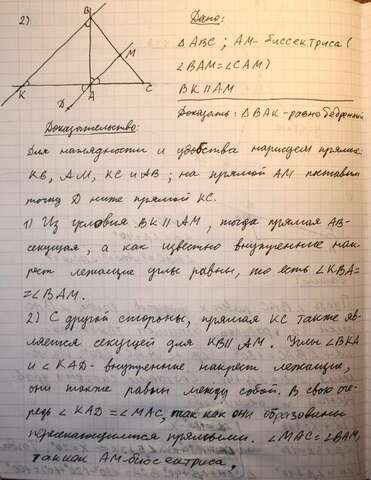 2)
B
M
K
A
C
D
Дано:
△ABC; AM- биссектриса (
∠BAM=∠CAM)
BK∥AM
Доказать: △BAK-равнобедренный
Доказательство:
Для наглядности и удобства нарисуем прямые
KB, AM, KC и AB; на прямой AM поставим
точку D ниже прямой KC.
1) Из условия BK∥AM, тогда прямая AB-
секущая, а как известно внутренние нак-
рест лежащие углы равны, то есть ∠KBA=
=∠BAM.
2) С другой стороны, прямая KC также яв-
ляется секущей для KB∥AM. Углы ∠BKA
и ∠KAD- внутренние накрест лежащие,
они также равны между собой. В свою оче-
редь ∠KAD=∠MAC, так как они образованы
пересекающимися прямыми. ∠MAC=∠BAM,
так как AM-биссектриса,